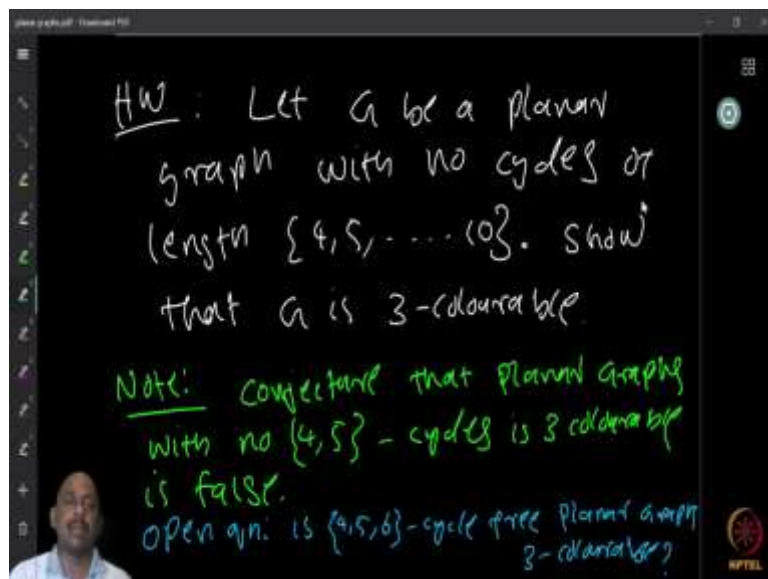 HW: Let G be a planar
graph with no cycles of
length {4,5,.....10}. Show
that G is 3-colourable.
Note: Conjecture that planar graphs
with no {4,5}-cycles is 3 colourable
is false.
Open qn: is {4,5,6}-cycle free planar graph
3-colourable?
NPTEL